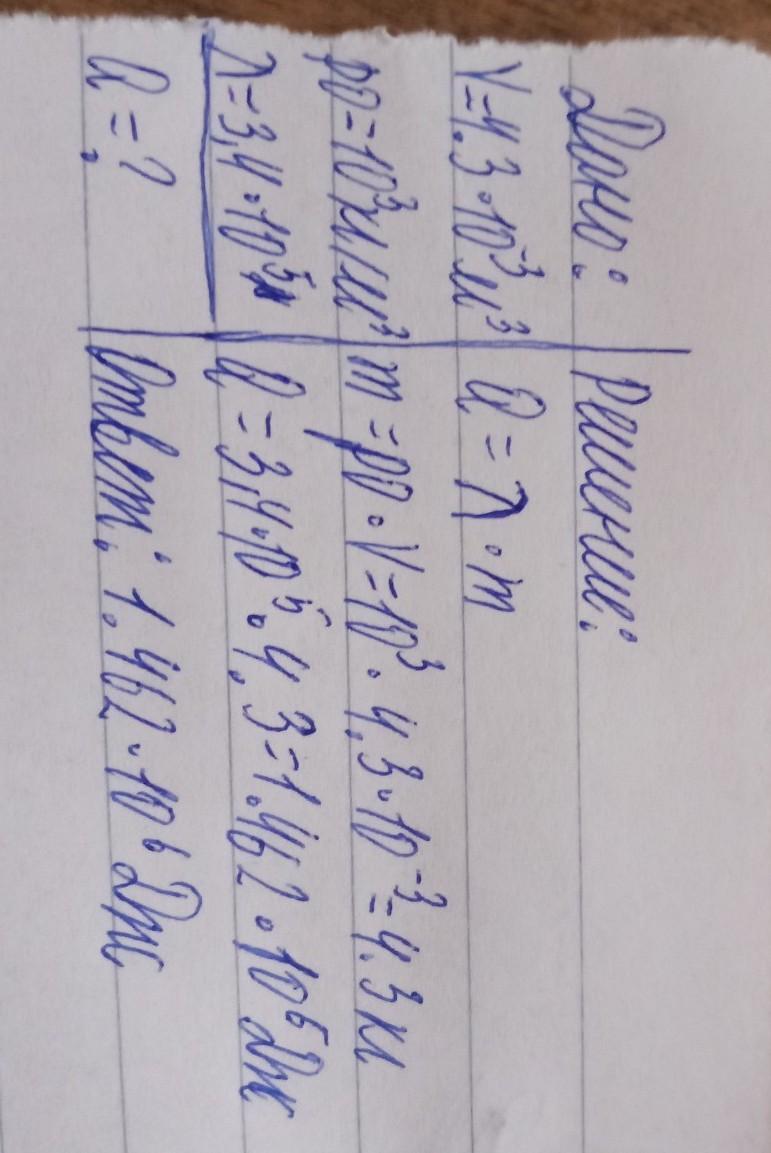 Дано:
V=4.3·10⁻³м³
ρ0=10³кг/м³
λ=3,4·10⁵
Q=?
Решение:
Q=λ·m
m=ρ0·V=10³·4.3·10⁻³=4.3кг
Q=3,4·10⁵·4.3=1.462·10⁵Дж
Ответ: 1.462·10⁶Дж